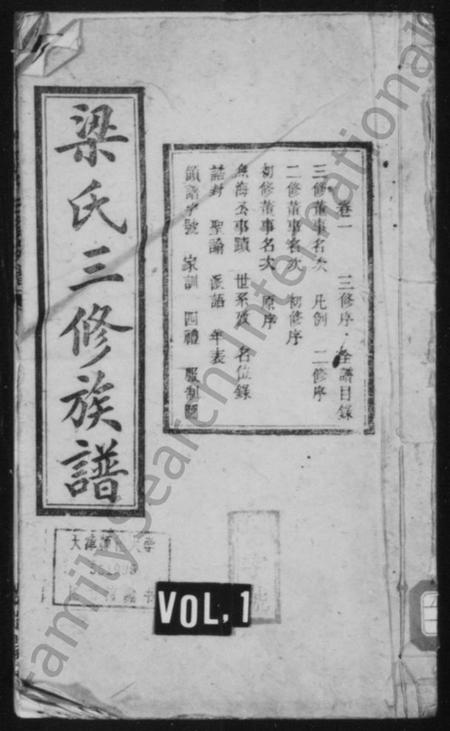 梁氏三修族譜
卷一 三修序 全譜目錄
三修董事名次 凡例 二修序
二修董事名次 初修序
初修董事名次 原序
事蹟 世系攷 名位錄
誥封 聖諭 派語 年表
領譜字號 家訓 四禮 服制圖
大
VOL, 1
FamilySearch International